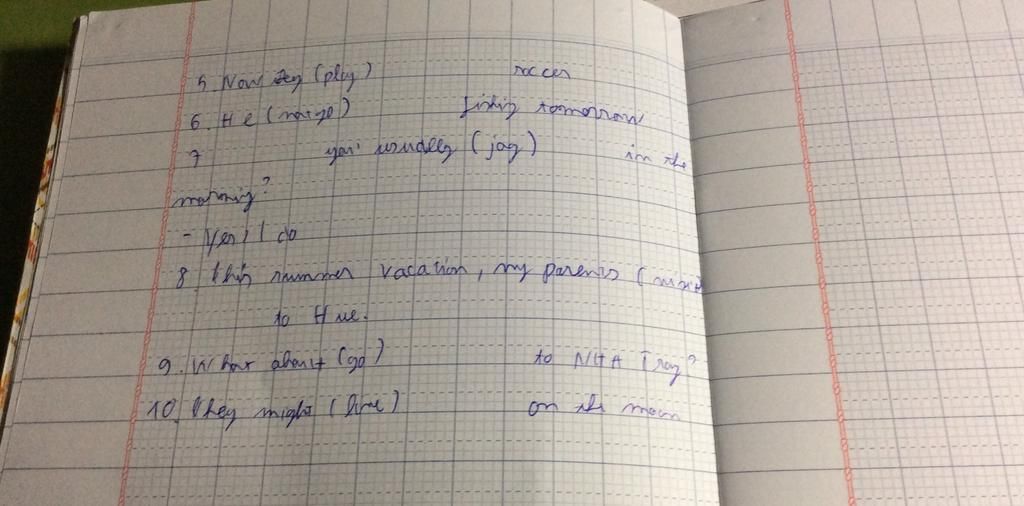 5. Now they (play) soccer
6. He (not go) fishing tomorrow
7 you usually (jog) in the
morning?
- Yes, I do
8. This summer vacation, my parents (visit
to Hue.
9. What about (go) to NHA Trag?
10 They might (live) on the moon